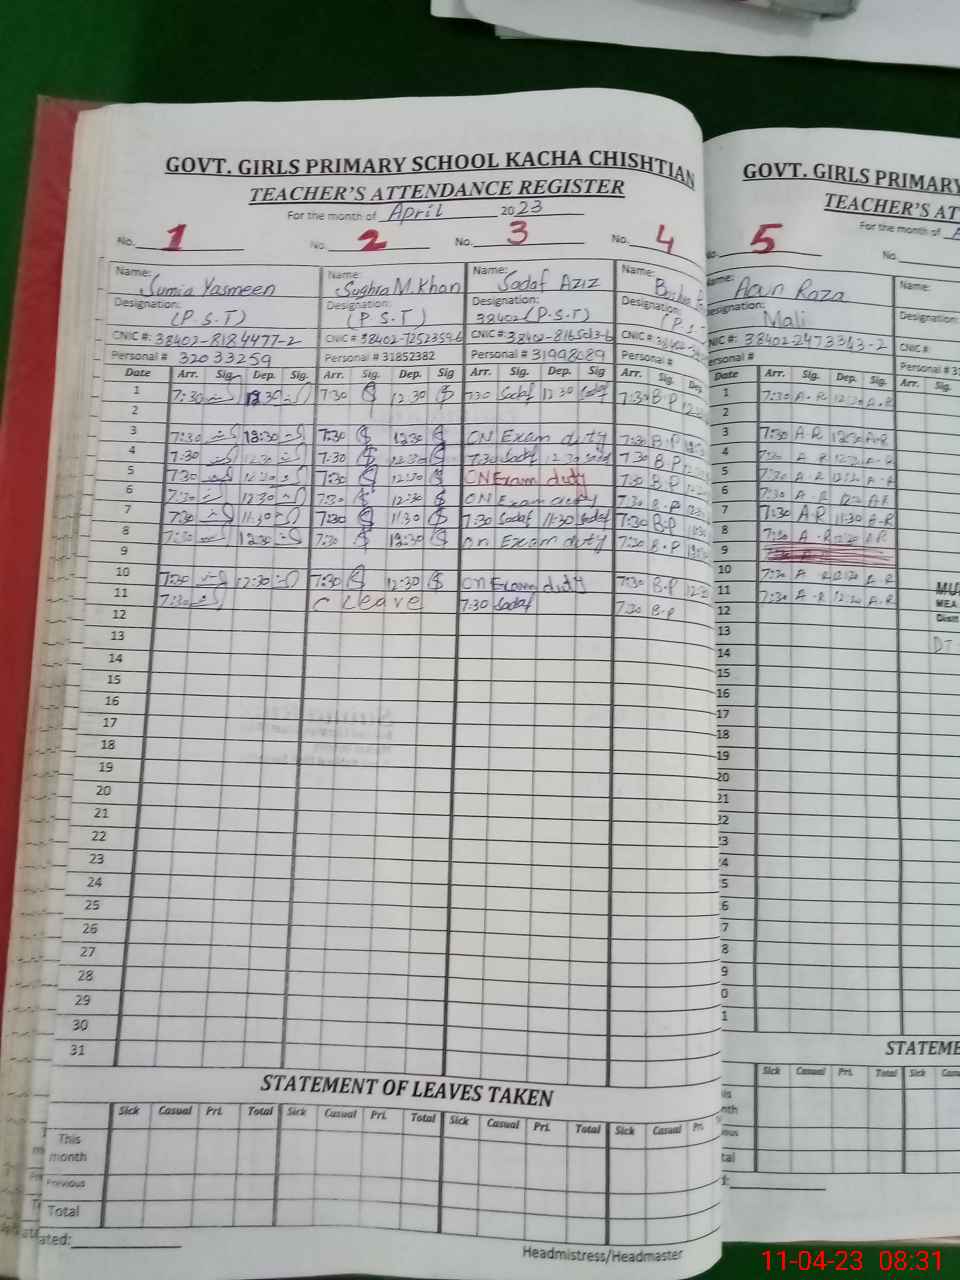 GOVT. GIRLS PRIMARY SCHOOL KACHA CHISHTIAN
TEACHER'S ATTENDANCE REGISTER
For the month of April 2023
No. 1 No. 2 No. 3 No. 4
Name: Sumia Yasmeen Name: Sughra M. Khan Name: Sadaf Aziz Name:
Designation: (P.S.T) Designation: (P.S.T) Designation: 38402 (P.S.T) Designation:
CNIC #: 38402-8184477-2 CNIC # 38402-7252359-6 CNIC # 38402-8165013-6 CNIC #
Personal # 32033259 Personal # 31852382 Personal # 31998089 Personal #
Date Arr. Sig. Dep. Sig. Arr. Sig. Dep. Sig Arr. Sig. Dep. Sig Arr. Sig. Dep
1 7:30 12:30 7:30 $ 12:30 $ 7:30 Sadaf 12:30 Sadaf 7:30 B.P
2
3 7:30 12:30 7:30 $ 12:30 $ ON Exam duty 7:30 B.P
4 7:30 12:30 7:30 $ 12:30 $ 7:30 Sadaf 12:30 Sadaf 7:30 B.P
5 7:30 12:30 7:30 $ 12:30 $ ON Exam duty 7:30 B.P
6 7:30 12:30 7:30 $ 12:30 $ ON Exam duty 7:30 B.P
7 7:30 11:30 7:30 $ 11:30 $ 7:30 Sadaf 11:30 Sadaf 7:30 B.P
8 7:30 12:30 7:30 $ 12:30 $ on Exam duty 7:30 B.P
9
10 7:30 12:30 7:30 $ 12:30 $ ON Exam duty 7:30 B.P
11 7:30 C Leave 7:30 Sadaf 7:30 B.P
12
13
14
15
16
17
18
19
20
21
22
23
24
25
26
27
28
29
30
31
STATEMENT OF LEAVES TAKEN
Sick Casual Pri. Total Sick Casual Pri. Total Sick Casual Pri. Total Sick Casual Pri.
This month
Previous
Total
ated:
Headmistress/Headmaster
GOVT. GIRLS PRIMARY
TEACHER'S AT
For the month of
5 No.
Name: Arun Raza Name:
Designation: Mali Designation
CNIC #: 38402-2473313-2 CNIC #:
Personal # Personal #
Date Arr. Sig. Dep. Sig Arr. Sig.
1 7:30 A.R 12:30 A.R
2
3 7:30 A.R 12:30 A.R
4 7:30 A.R 12:30 A.R
5 7:30 A.R 12:30 A.R
6 7:30 A.R 12:30 A.R
7 7:30 A.R 11:30 A.R
8 7:30 A.R 12:30 A.R
9
10 7:30 A.R 12:30 A.R
11 7:30 A.R 12:30 A.R
12
13
14
15
16
17
18
19
20
21
22
STATEME
Sick Casual Pri. Total Sick Casual
11-04-23 08:31